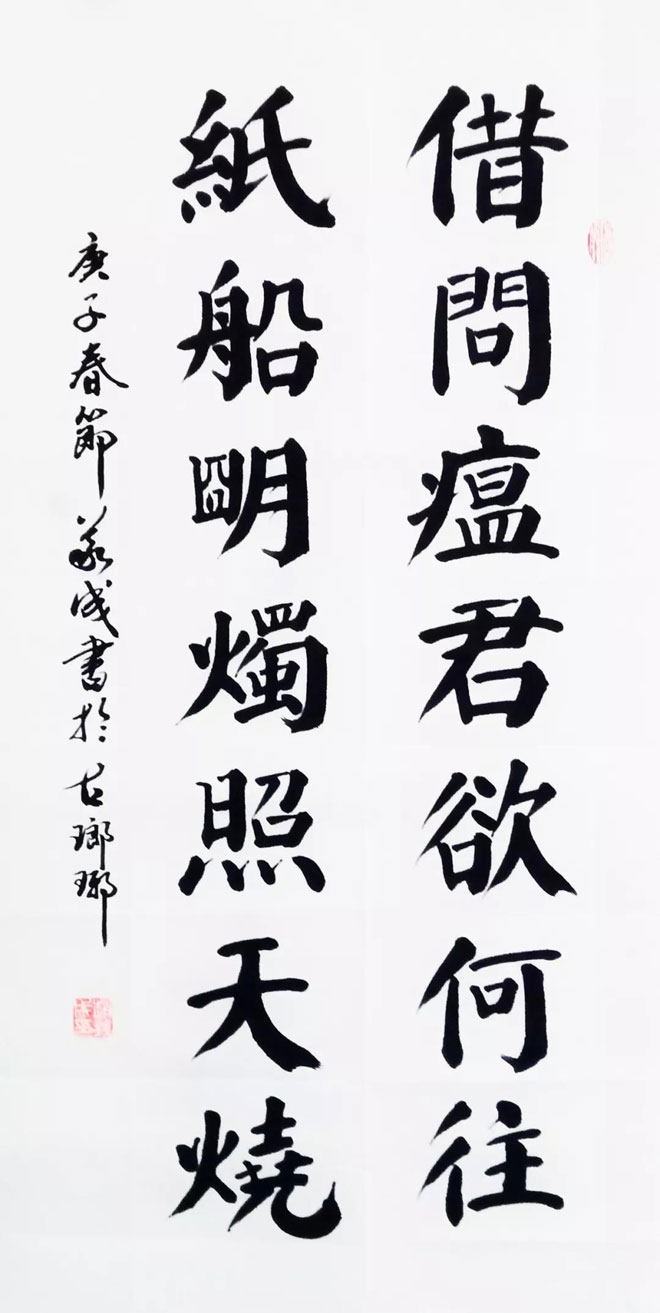 借問瘟君欲何往
紙船朙燭照天燒
庚子春節義成書於古瑯琊